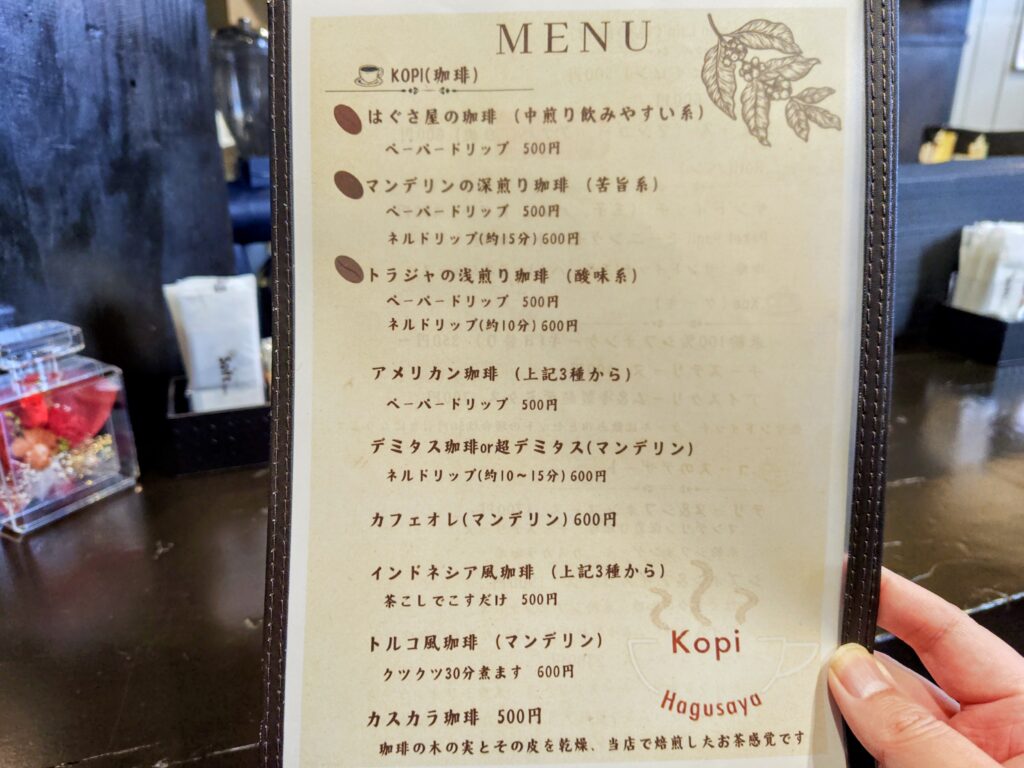 MENU
KOPI(珈琲)
はぐさ屋の珈琲 (中煎り飲みやすい系)
ペーパードリップ 500円
マンデリンの深煎り珈琲 (苦旨系)
ペーパードリップ 500円
ネルドリップ(約15分)600円
トラジャの浅煎り珈琲 (酸味系)
ペーパードリップ 500円
ネルドリップ(約10分)600円
アメリカン珈琲 (上記3種から)
ペーパードリップ 500円
デミタス珈琲or超デミタス(マンデリン)
ネルドリップ(約10〜15分)600円
カフェオレ(マンデリン)600円
インドネシア風珈琲 (上記3種から)
茶こしでこすだけ 500円
トルコ風珈琲 (マンデリン)
クツクツ30分煮ます 600円
カスカラ珈琲 500円
珈琲の木の実とその皮を乾燥、当店で焙煎したお茶感覚です
Kopi
Hagusaya